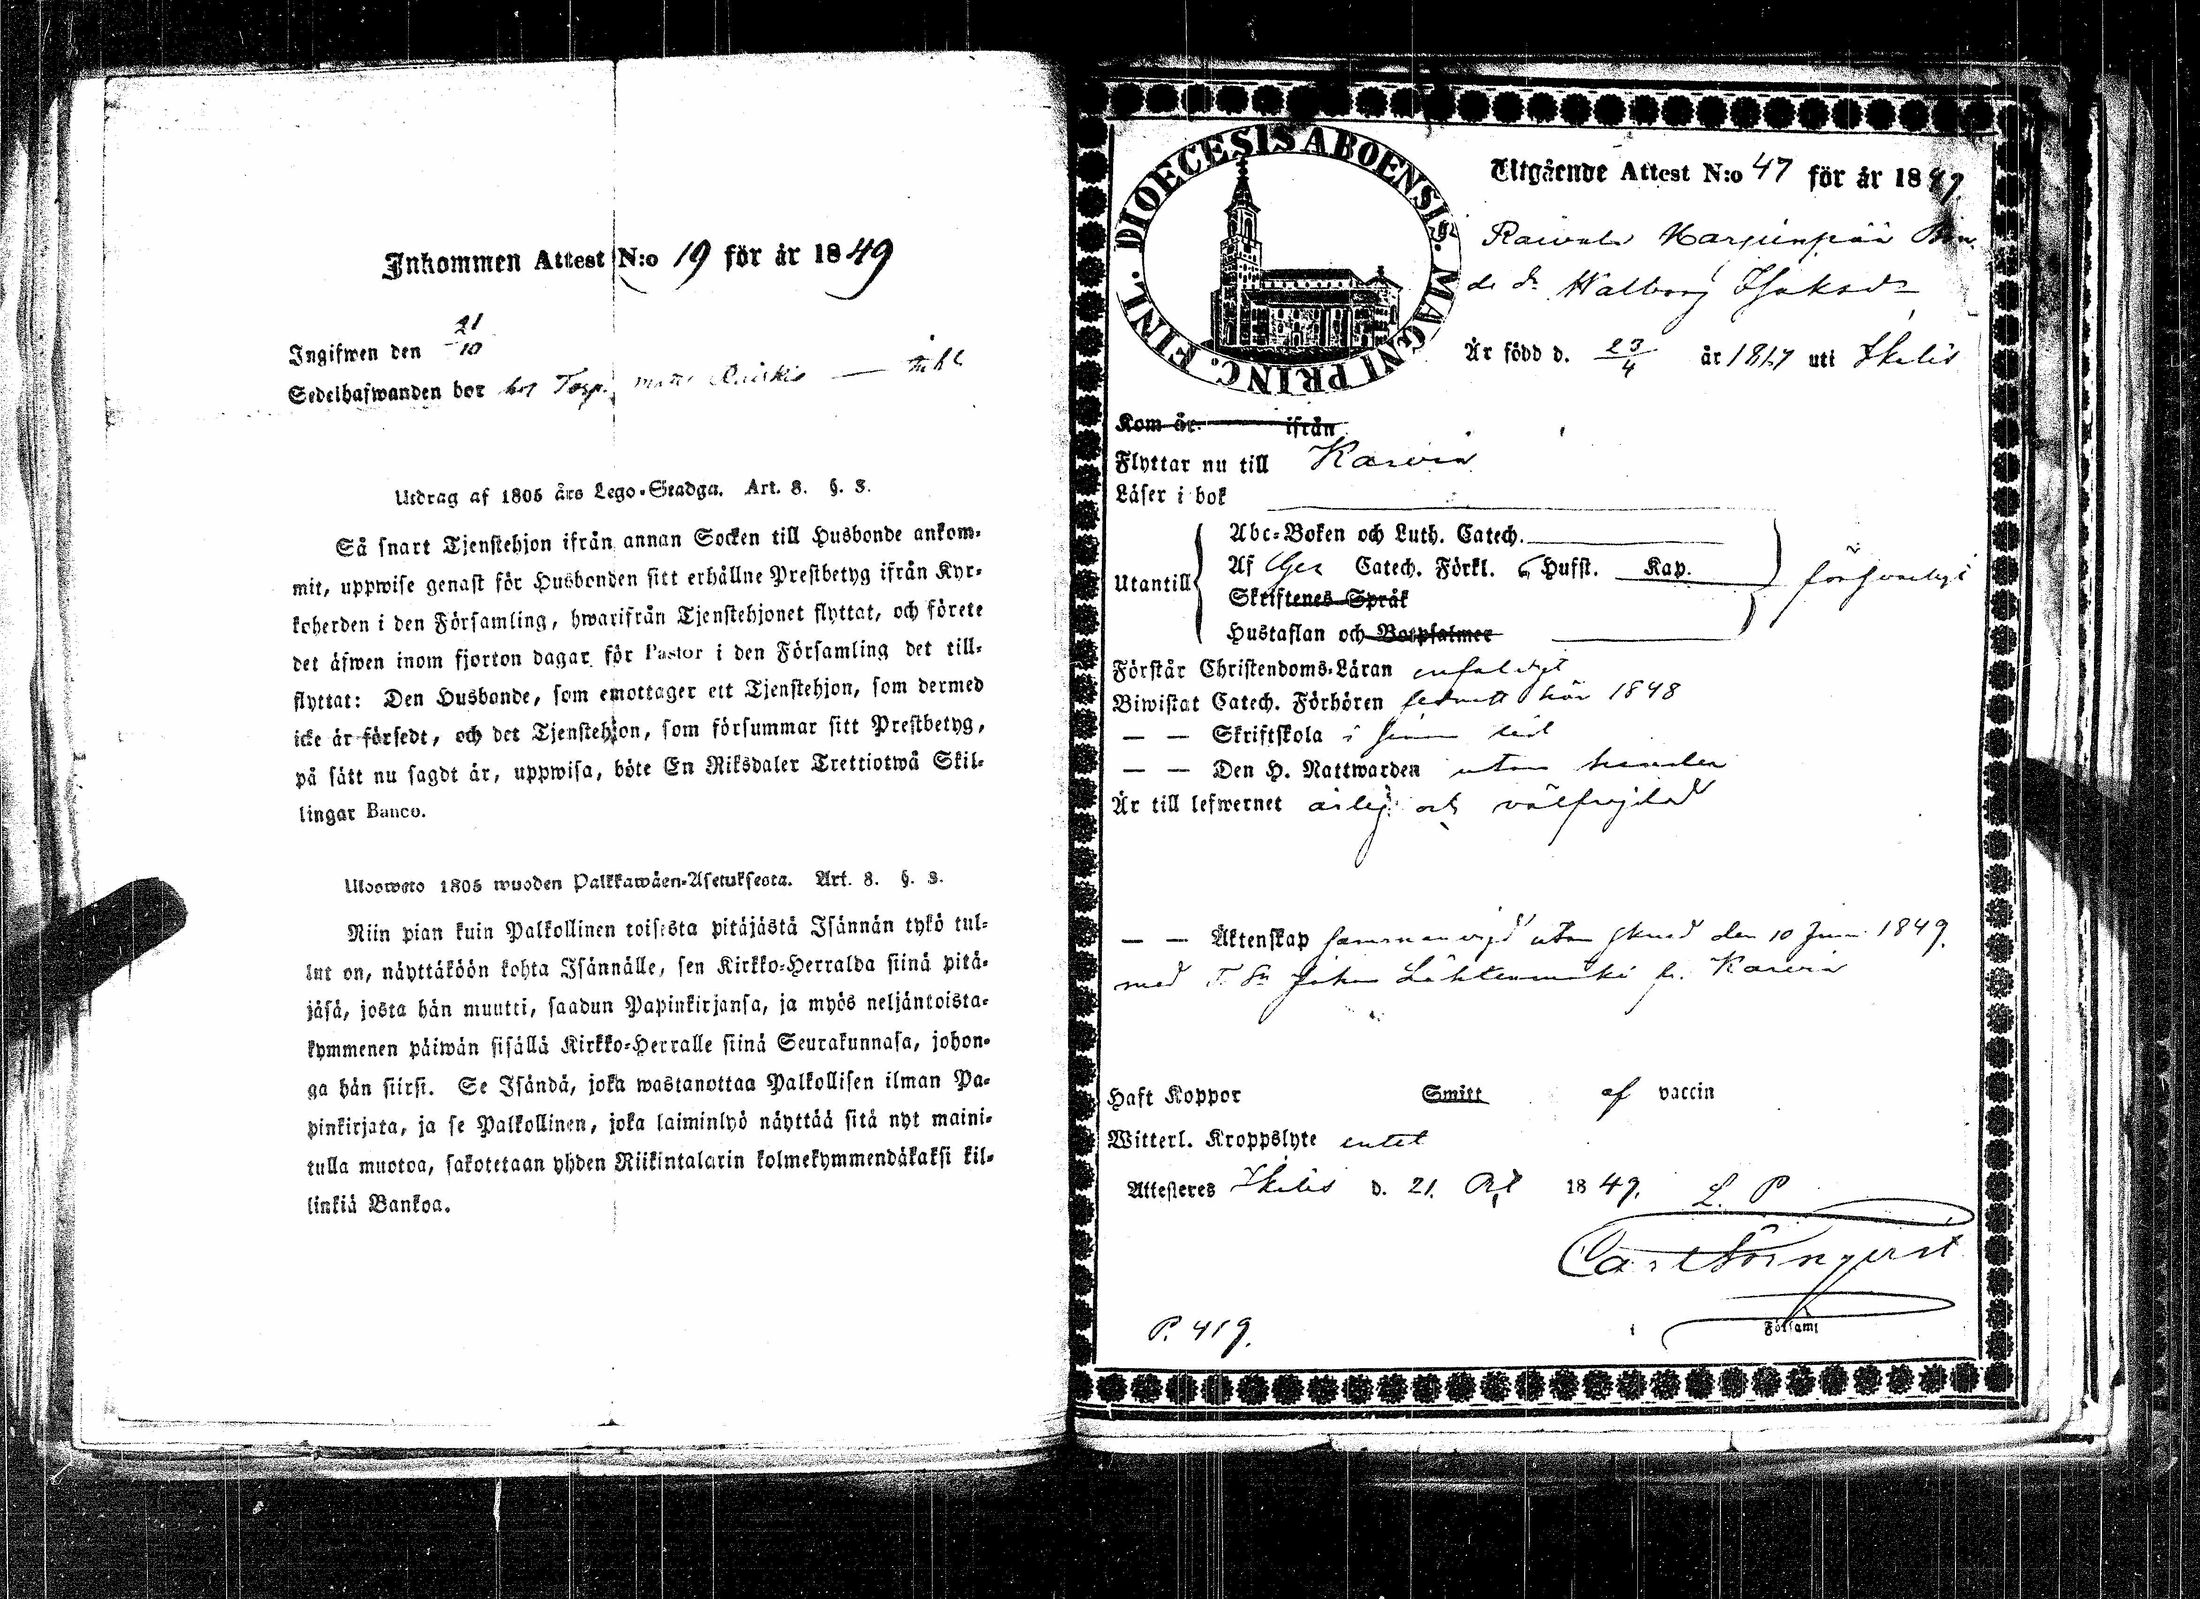 Inkommen Attest N:o 19 för år 1849
Ingifwen den 21/10
Sedelhafwanden bor hos Torp.
Utdrag af 1805 års Lego-Stadga. Art. 8. §. 3.
Så snart Tjenstehjon ifrån annan Socken till Husbonde ankom-
mit, uppwise genast för Husbonden sitt erhållne Prestbetyg ifrån Kyr-
koherden i den Församling, hwarifrån Tjenstehjonet flyttat, och förete
det äfwen inom fjorton dagar för Pastor i den Församling det till-
flyttat: Den Husbonde, som emottager ett Tjenstehjon, som dermed
icke är försedt, och det Tjenstehjon, som försummar sitt Prestbetyg,
på sätt nu sagdt är, uppwisa, böte En Riksdaler Trettiotwå Skil-
lingar Banco.
Ulosweto 1805 wuoden Palkkawäen-Asetuksesta. Art. 8. §. 3.
Niin pian kuin Palkollinen toisesta pitäjästä Isännän tykö tul-
lut on, näyttäköön kohta Isännälle, sen Kirkko-Herralda siinä pitä-
jäsä, josta hän muutti, saadun Papinkirjansa, ja myös neljäntoista-
kymmenen päiwän sisällä Kirkko-Herralle siinä Seurakunnasa, johon-
ga hän siirsi. Se Isändä, joka wastanottaa Palkollisen ilman Pa-
pinkirjata, ja se Palkollinen, joka laiminlyö näyttää sitä nyt maini-
tulla muotoa, sakotetaan yhden Riikintalarin kolmekymmendäkaksi kil-
linkiä Bankoa.
DIOECESIS ABOENSIS. MAGNI PRINC. FINL.
Utgående Attest N:o 47 för år 1849.
d. Walborg Isaksdr
Är född d. 23/4 år 1817 uti Ikalis
Kom år ifrån
Flyttar nu till Karvia
Läser i bok
Abc-Boken och Luth. Catech.
Af Catech. Förkl. 6 Hufst. Kap.
Utantill försvarligt
Skriftenes Språk
Hustaflan och Botpsalmer
Förstår Christendoms-Läran enfaldigt
Biwistat Catech. Förhören här 1848
— — Skriftskola i sinom tid
— — Den H. Nattwarden utan hinder
Är till lefwernet ärlig och välfrejdad
— — Äktenskap sammanvigd utom den 10 Juni 1849.
med Johan fr. Karvia
Haft Koppor Smitt af vaccin
Witterl. Kroppslyte intet
Attesteras Ikalis d. 21. Oct 1849. L. P
Carl Törnqvist
i Församl
P. 419.